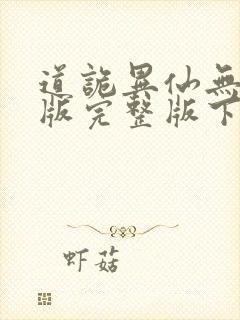 道詭異仙無
版完整版下
虾菇